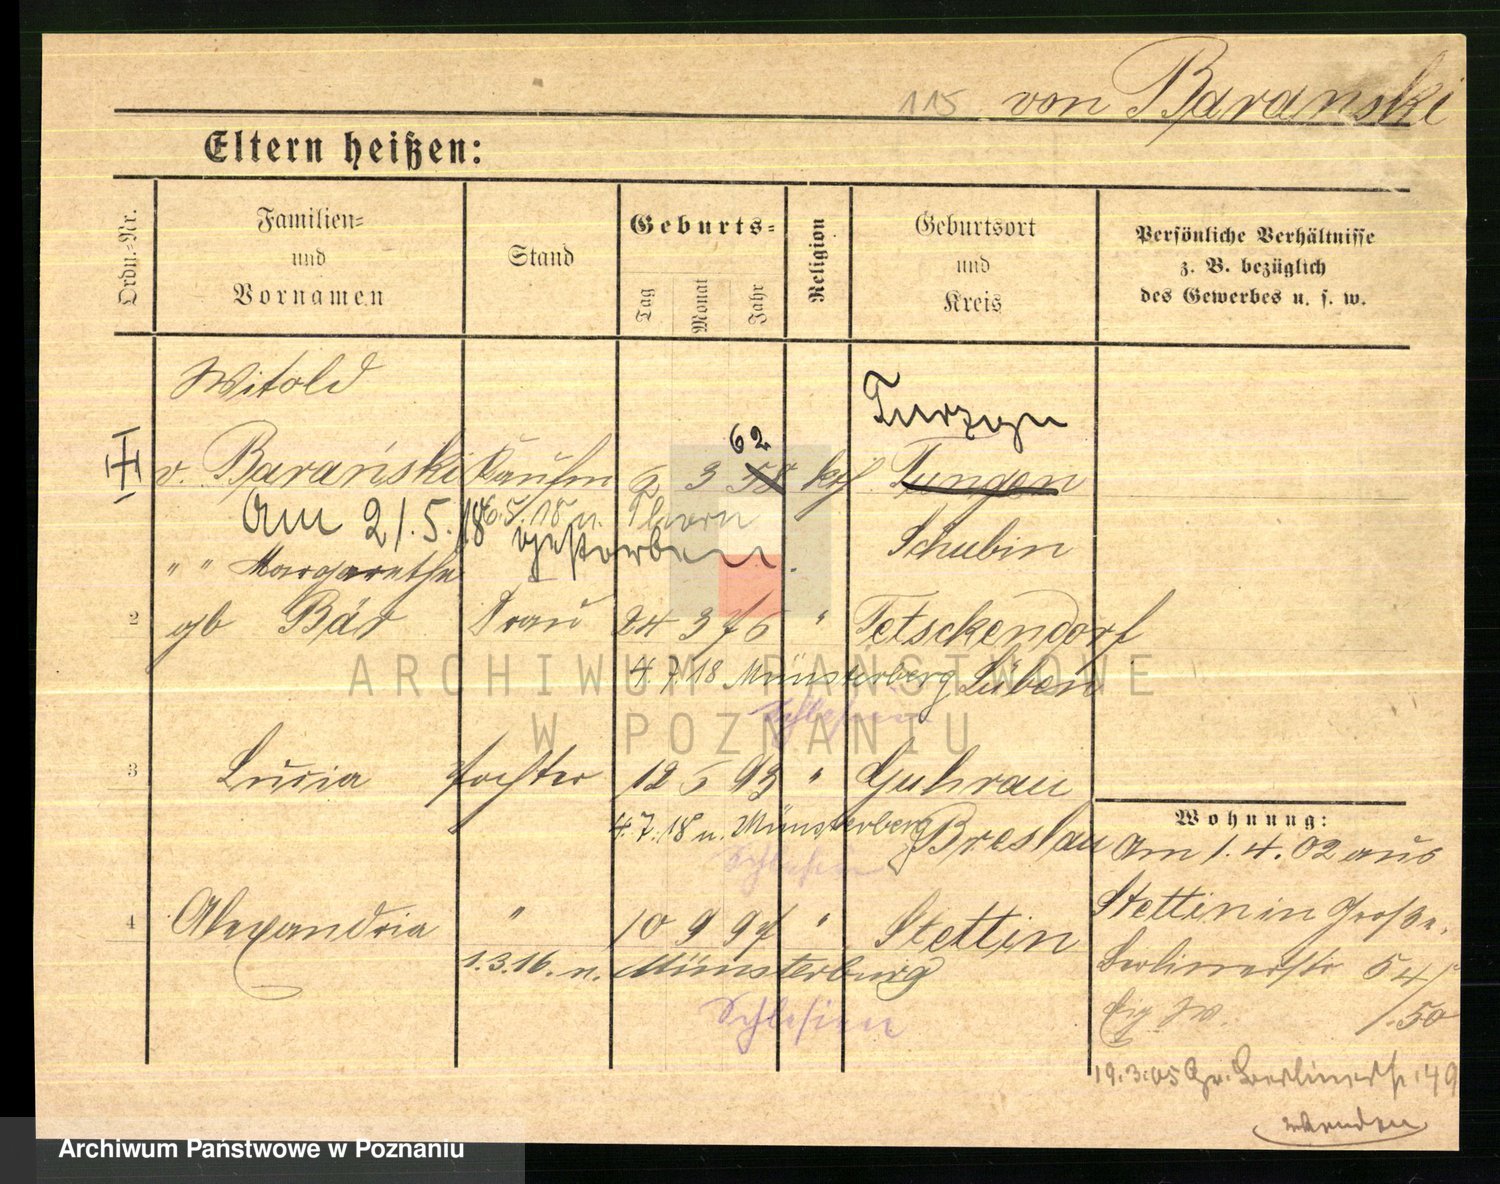 115 von Baranski
Eltern heißen:
Ordn.-Nr.
Familien-
und
Vornamen
Stand
Geburts-
Tag
Monat
Jahr
Religion
Geburtsort
und
Kreis
Persönliche Verhältnisse
z. B. bezüglich
des Gewerbes u. s. w.
Witold
v. Barański Kaufm 2 3 58 62 kth Tungen Turzyn
Am 21.5.18 gestorben.
6.5.18 n. Thorn
Schubin
" " Margarethe
2 gb Bär Frau 24 3 76 " Tetschendorf
4.7.18 Münsterberg Lüben
Schlesien
3 Lucia Tochter 12 5 93 " Guhrau
4.7.18 n. Münsterberg Breslau
Schlesien
4 Alexandria " 10 9 97 " Stettin
1.3.16. n. Münsterburg
Schlesien
Wohnung:
Am 1.4.02 aus
Stettin in Große
Berlinerstr 54
/.50
19.3.05 Gr. Berlinerstr. 49
ARCHIWUM PAŃSTWOWE
W POZNANIU
Archiwum Państwowe w Poznaniu